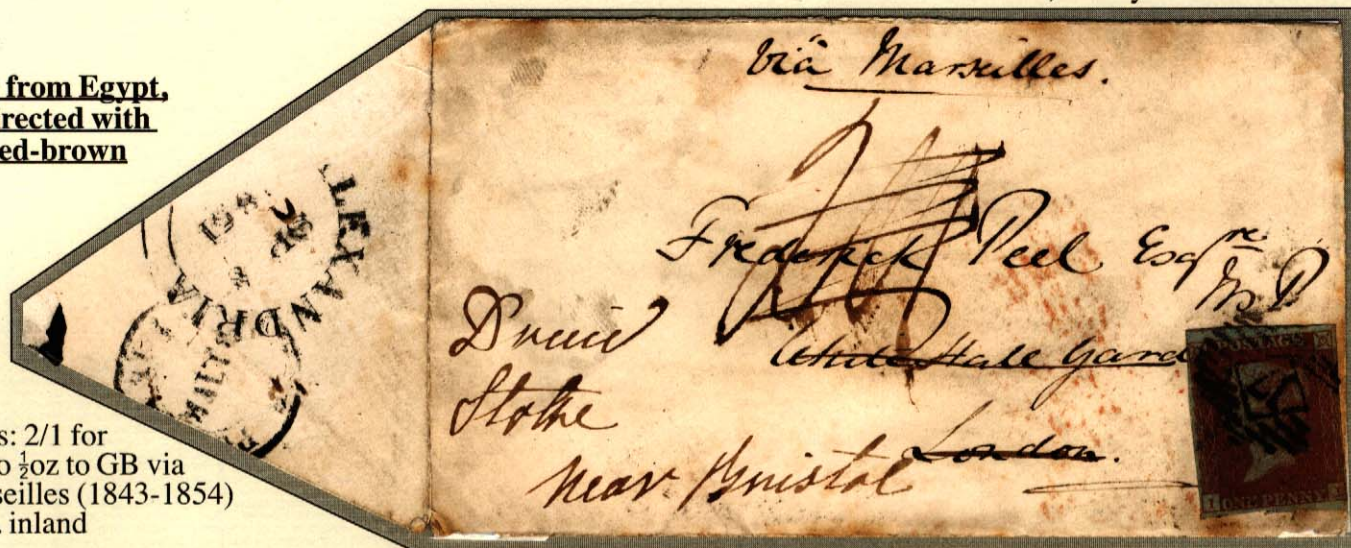 from Egypt,
rected with
ed-brown
s: 2/1 for
o ½oz to GB via
seilles (1843-1854)
. inland
LEXANDRIA
SP
viâ Marseilles.
Frederick Peel Esqre
M P
White Hall Gard
London.
Druid
Stoke
near Bristol
POSTAGE
ONE PENNY